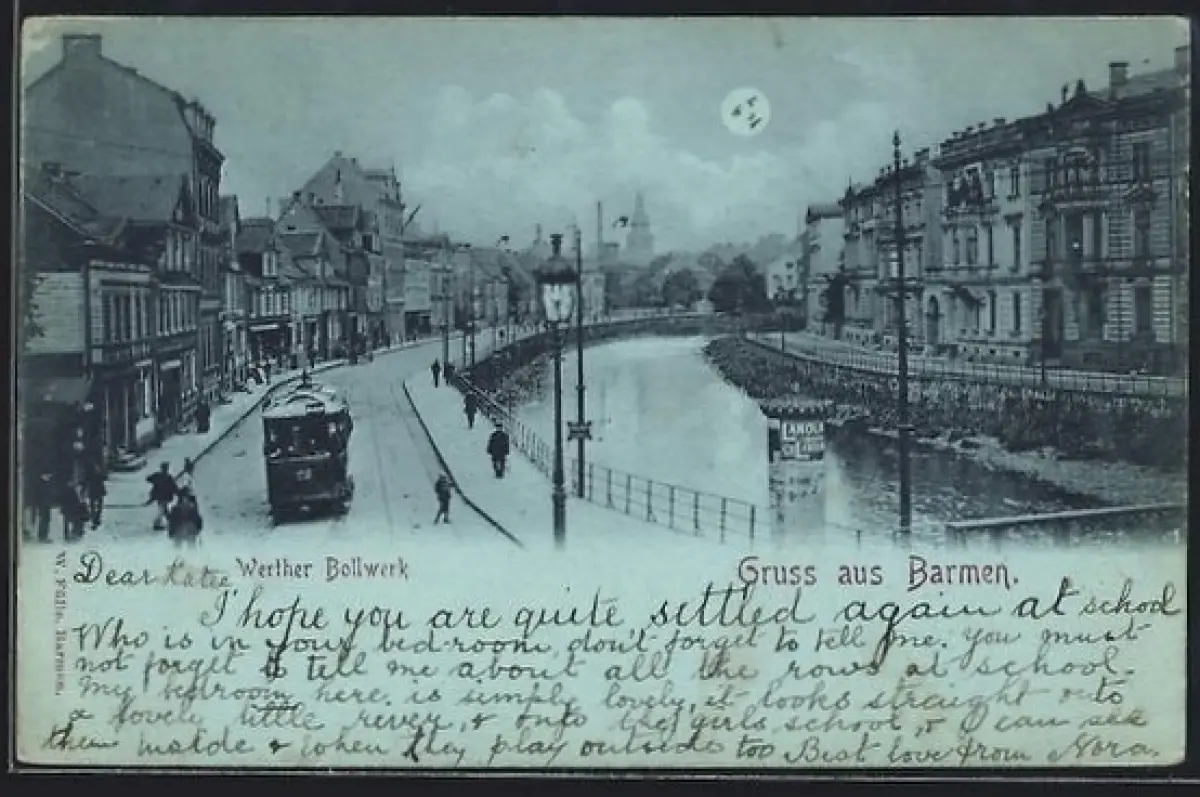 LANOLIN
Werther Bollwerk
Gruss aus Barmen.
W. Fülle, Barmen.
Dear Katie
I hope you are quite settled again at school
Who is in your bed-room, don't forget to tell me. You must
not forget to tell me about all the rows at school.
My bedroom here. is simply lovely, it looks straight on to
a lovely little rever, & onto the girls school, & I can see
them inside & when they play outside too Best love from Nora.